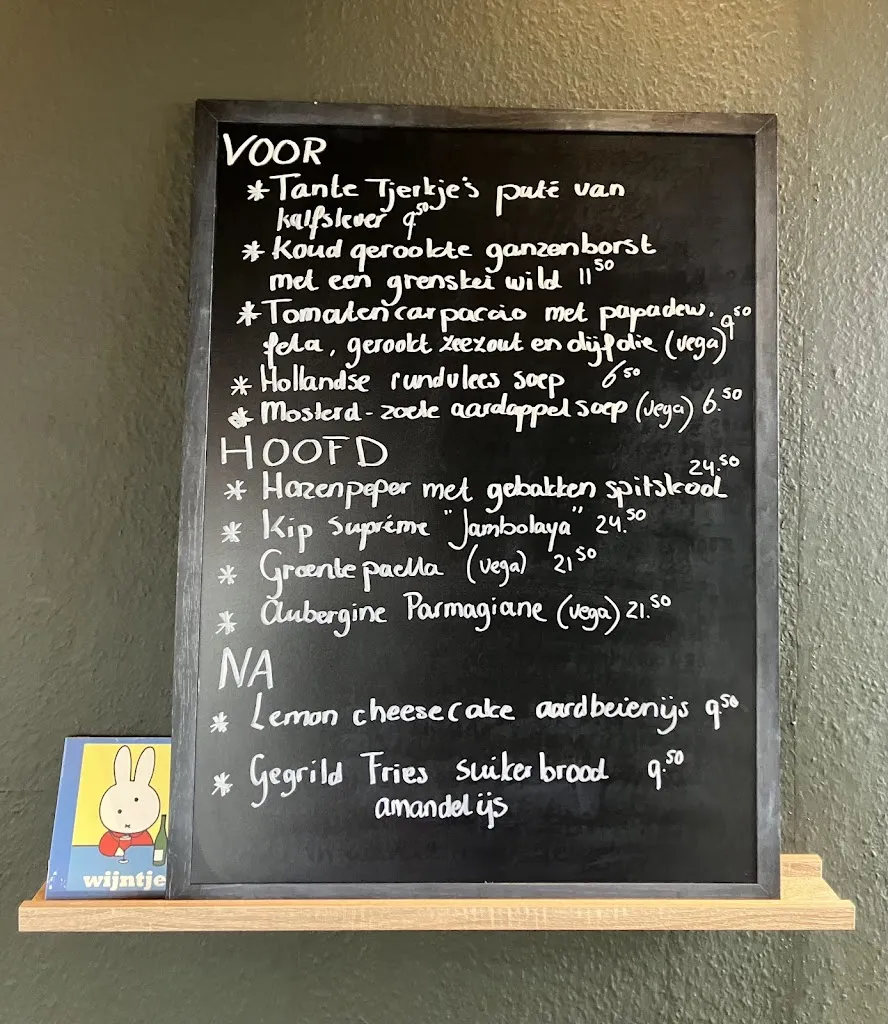 VOOR
* Tante Tjerkje's paté van
kalfslever 9⁵⁰
* Koud gerookte ganzenborst
met een grenskei wild 11⁵⁰
* Tomaten carpaccio met papadew, 9⁵⁰
feta, gerookt zeezout en dijfolie (vega)
* Hollandse rundvlees soep 6⁵⁰
* Mosterd-zoete aardappel soep (vega) 6.⁵⁰
HOOFD
* Hazenpeper met gebakken spitskool 24.⁵⁰
* Kip Suprème "Jambolaya" 24.⁵⁰
* Groente paella (vega) 21⁵⁰
* Aubergine Parmagiane (vega) 21.⁵⁰
NA
* Lemon cheesecake aardbeienijs 9⁵⁰
* Gegrild Fries suikerbrood 9.⁵⁰
amandelijs
wijntje